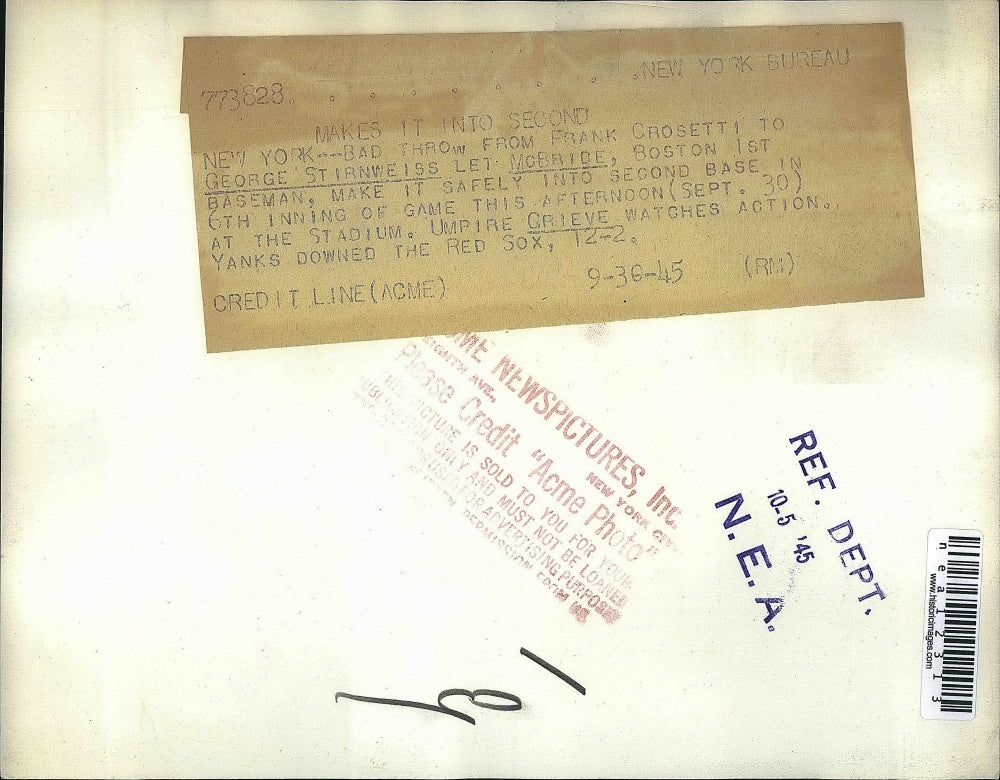 773828. . . . . . . .NEW YORK BUREAU
MAKES IT INTO SECOND
NEW YORK--BAD THROW FROM FRANK CROSETTI TO
GEORGE STIRNWEISS LET MCBRIDE, BOSTON 1ST
BASEMAN, MAKE IT SAFELY INTO SECOND BASE IN
6TH INNING OF GAME THIS AFTERNOON(SEPT. 30)
AT THE STADIUM. UMPIRE GRIEVE WATCHES ACTION.
YANKS DOWNED THE RED SOX, 12-2.
CREDIT LINE(ACME) 9-30-45 (RM)
NEWSPICTURES, Inc.
AVE., NEW YORK CITY
Please Credit "Acme Photo"
PICTURE IS SOLD TO YOU FOR YOUR
ONLY AND MUST NOT BE LOANED
USED FOR ADVERTISING PURPOSES
PERMISSION FROM
REF. DEPT.
10-5 '45
N. E. A.
nea12313
www.historicimages.com